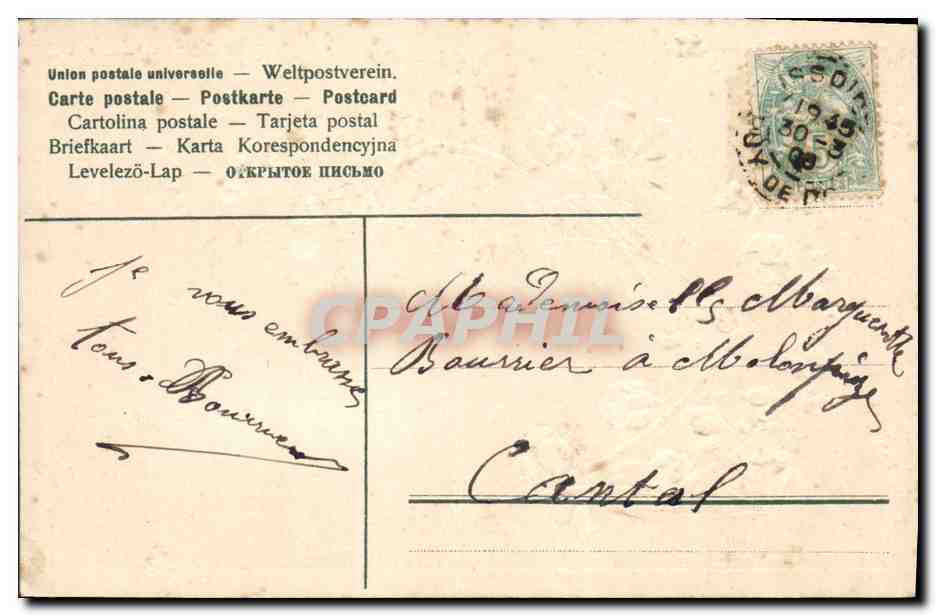 Union postale universelle — Weltpostverein.
Carte postale — Postkarte — Postcard
Cartolina postale — Tarjeta postal
Briefkaart — Karta Korespondencyjna
Levelező-Lap — ОТКРЫТОЕ ПИСЬМО
SSOIRE
19 45
30 - 3
PUY DE D
Je vous embrasse
tous. Bourrier
Mademoiselle Marguerite
Bourrier à Molompize
Cantal
CPAPHIL